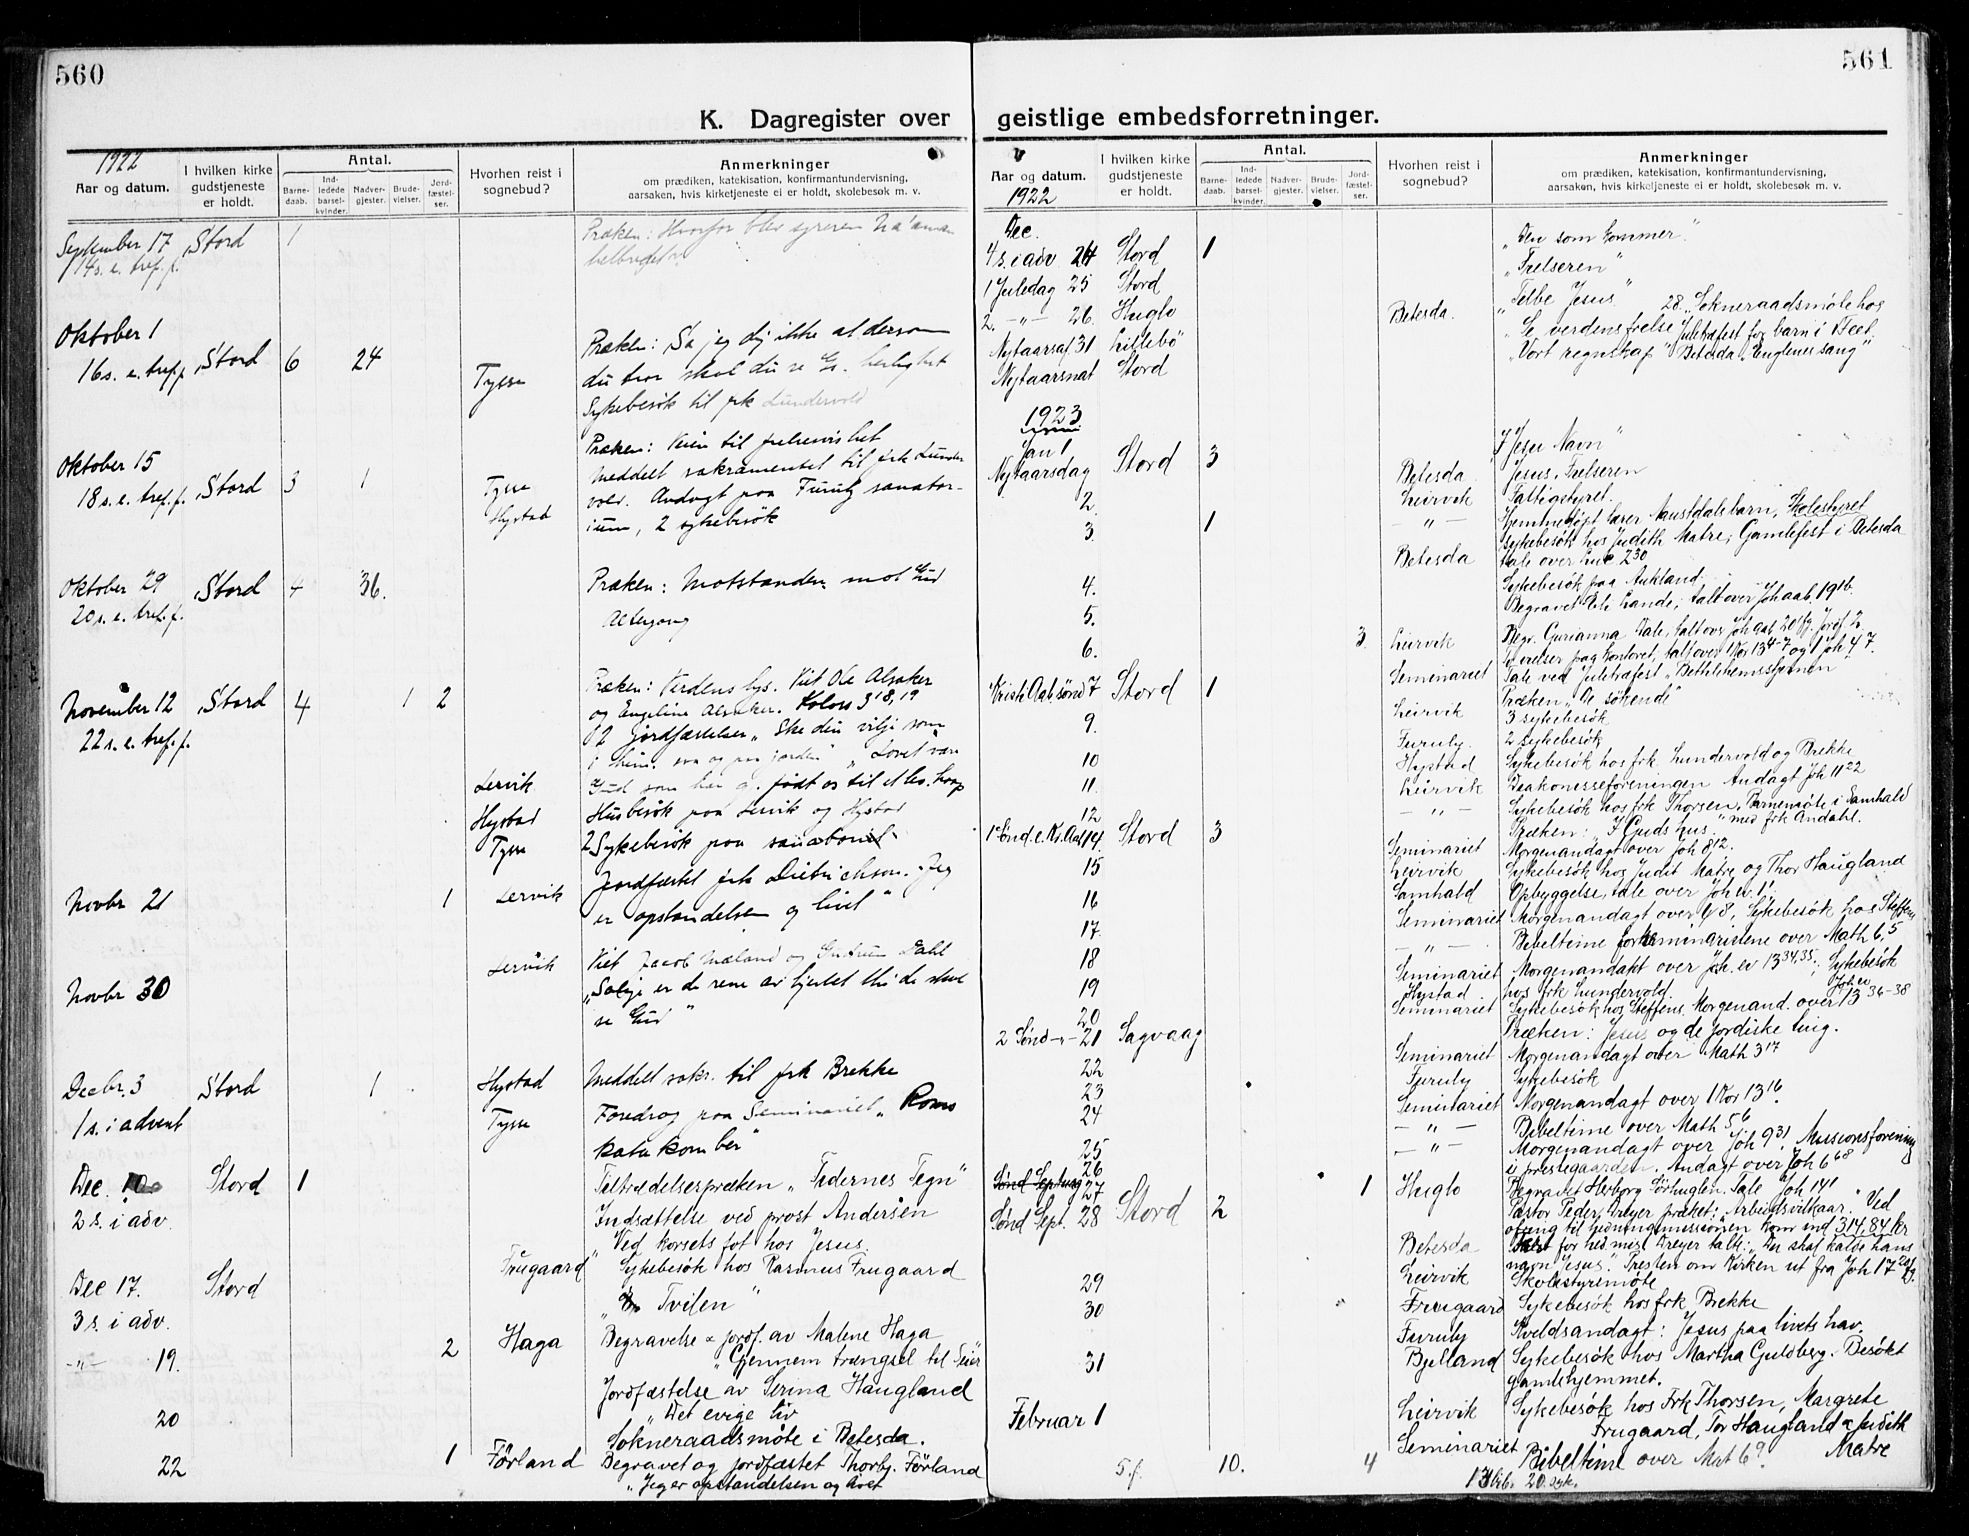 560
K. Dagregister over
1922
Aar og datum.
I hvilken kirke gudstjeneste er holdt.
Antal.
Barne-daab.
Ind-ledede barsel-kvinder.
Nadver-gjester.
Brude-vielser.
Jord-fæstel-ser.
Hvorhen reist i sognebud?
Anmerkninger
om prædiken, katekisation, konfirmantundervisning,
aarsaken, hvis kirketjeneste ei er holdt, skolebesøk m. v.
September 17 Stord 1 Præken: Hvorfor blev syreren Na'aman
14 s. e. tref. f. helbredet
Oktober 1 Præken: Sa jeg dig ikke at dersom
16 s. e. tref f Stord 6 24 Tysse du tror skal du se Gs. herlighet
Sykebesøk til frk Lundervold
Præken: Veien til frelsesvishet
Oktober 15 Meddelt sakramentet til frk Lunder
18 s. e. tref. f. Stord 3 1 Tysse vold. Andagt paa Furuly sanator-
Hystad ium, 2 sykebesøk
Oktober 29 Stord 4 36. Præken: Motstanden mot Gud
20 s. e. tref. f. Altergang
Præken: Verdens lys. Viet Ole Alsaker
November 12 Stord 4 1 2 og Engeline Alsaker. Kolos 3 18,19
22 s. e. tref. f. 2 jordfæstelser „Ske din vilje som
i him. saa og paa jorden" „Lovet være
Lervik Gud som har g. født os til et lev. haap
Hystad Husbesøk paa Lervik og Hystad
Tysse 2 Sykebesøk paa sanatoriet
Novbr 21 1 Lervik Jordfæstet frk Dietrichson. „Jeg
er opstandelsen og livet"
Novbr 30 Lervik Viet Jacob Mæland og Gudrun Dahl
„Salige er de rene av hjertet thi de skal
se Gud"
Decbr. 3 Stord 1 Hystad Meddelt sakr. til frk Brekke
1 s. i advent Tysse Foredrag paa Seminariet „Roms
katakomber"
Dec. 10 Stord 1 Tiltrædelsespræken „Tidernes Tegn"
2 s. i adv. Indsættelse ved prost Andersen
„Ved korsets fot hos Jesus.
Frugaard Sykebesøk hos Rasmus Frugaard
Dec 17. Stord „Tvilen"
3 s. i adv.
-„- 19. 2 Haga Begravelse & jordf. av Malene Haga
„Gjennem trængsel til Seier
Jordfæstelse av Serina Haugland
20 „Det evige liv
Sokneraadsmøte i Betesda.
22 1 Førland Begravet og jordfæstet Thorbj. Førland
„Jeg er opstandelsen og livet
561
geistlige embedsforretninger.
Aar og datum.
1922
I hvilken kirke gudstjeneste er holdt.
Antal.
Barne-daab.
Ind-ledede barsel-kvinder.
Nadver-gjester.
Brude-vielser.
Jord-fæstel-ser.
Hvorhen reist i sognebud?
Anmerkninger
om prædiken, katekisation, konfirmantundervisning,
aarsaken, hvis kirketjeneste ei er holdt, skolebesøk m. v.
Dec.
4 s. i adv 24 Stord 1 „Den som kommer."
1 Juledag 25 Stord „Frelseren"
2. -„- 26. Huglo Betesda. „Jesus" 28. Sokneraadsmøte hos
Nytaarsaf. 31 Littlebø „Se, verdens frelse" Juletræfest for barn i
Nytaarsnat Stord „Vort regnskap" Betesda „Englenes sang"
1923
Jan 1
Nytaarsdag Stord 3 „I Jesu Navn"
Betesda Jesus, Frelseren
2. Leirvik Fattigstyret.
3. 1 „ - Hjemmedøpt lærer Naustdals barn, Skolestyret
Sykebesøk hos Judith Matre, Gamlefest i Betesda
Betesda tale over Luc 2 30
4. Sykebesøk paa Aukland
5. Begravet Lande; talt over Joh aab. 19 16.
6. 3 Leirvik Begr. Gurianna Dale, talt over Joh aab 20 Jordf 2
paa kontoret, talt over 1 Kor 13 4-7 og 1 Joh 4 7.
Seminariet Tale ved Juletræfest „Bethlehemsstjernen"
Kristi Aab. sønd 7 Stord 1 Præken „De søkende"
Leirvik 3 sykebesøk
9. Furuly. 2 sykebesøk
10 Hystad Sykebesøk hos frk. Lundervold og Brekke
11. Leirvik Diakonisseforeningen Andagt Joh 11 22
12 „ - Sykebesøk hos frk Thorsen, Barnemøte i Samhald
1 Sønd. e. Kr. Aab 14. Stord 3 Præken: „I Guds hus." med frk Andahl.
15 Seminariet Morgenandagt over Joh 8 12.
Leirvik Sykebesøk hos Judit Matre og Thor Haugland
16 Samhald Opbyggelse, tale over Joh ev. 1 1
17. Seminariet Morgenandagt over 8, Sykebesøk hos Steffens
- „ - Bibeltime for seminaristene over Math 6, 5
18 Seminariet Morgenandakt over Joh. ev 13 34,35; Sykebesøk
19 Hystad hos frk Lundervold. Joh ev
20 Seminariet Sykebesøk hos Steffens. Morgenand. over 13 36-38
2 Sønd -„- 21 Sagvaag Præken: Jesus og de jordiske ting.
22 Seminariet Morgenandagt over Math 3 17
23 Furuly Sykebesøk
24 Seminariet Morgenandagt over 1 Kor 13 16
- „ - Bibeltime over Math 5 6
25 - „ - Morgenandagt over Joh 9 31, Missionsforening
26 i prestegaarden. Andagt over Joh 6 68
27 1 Huglo Begravet Herborg Sørhuglen. Tale Joh 14 1
Sønd Sept. 28 Stord 2 Pastor Peder Dreyer præket: Arbeidsvilkaar." Ved
ofring til hedningemissionen kom ind 314,84 kr
Betesda for hed.mis. Dreyer talte: „Du skal kalde hans
navn Jesus." Presten om Kirken ut fra Joh 17 20 fg.
29 Leirvik Skolestyremøte
30 Frugaard Sykebesøk hos frk Brekke
Furuly Kveldsandagt: Jesus paa livets hav.
31 Bjelland Sykebesøk hos Martha Guldberg. Besøkt
gamlehjemmet.
Februar 1 Leirvik Sykebesøk hos Frk Thorsen, Margrete
Frugaard, Tor Haugland & Judith
Seminariet Bibeltime over Mat 6 9. Matre
5. f. 10. 4 20. syk.